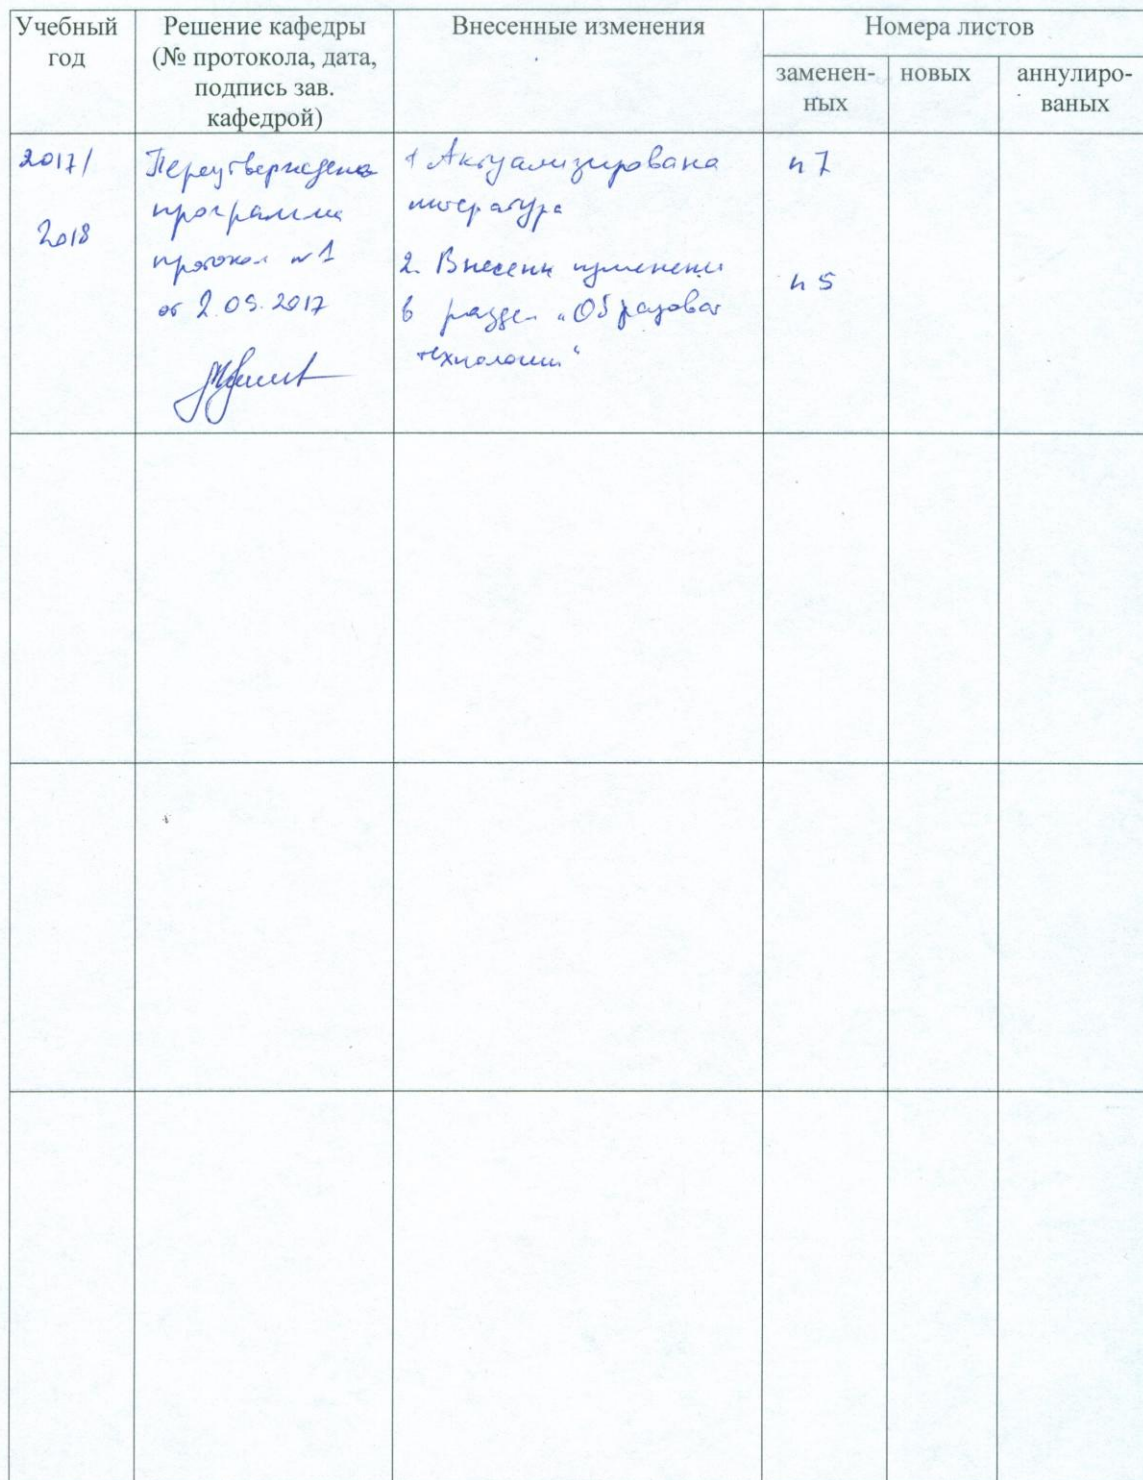 Учебный
год
Решение кафедры
(№ протокола, дата,
подпись зав.
кафедрой)
Внесенные изменения
Номера листов
заменен-
ных
новых
аннулиро-
ваных
2017/
2018
Переутверждена
программа
протокол №1
от 2.09.2017
1 Актуализирована
литература
2. Внесены изменени
в раздел „Образоват
технологии“
п 7
п 5